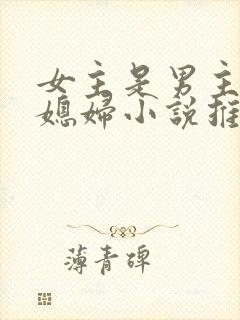 女主是男主
媳婦小說推
薄青碑